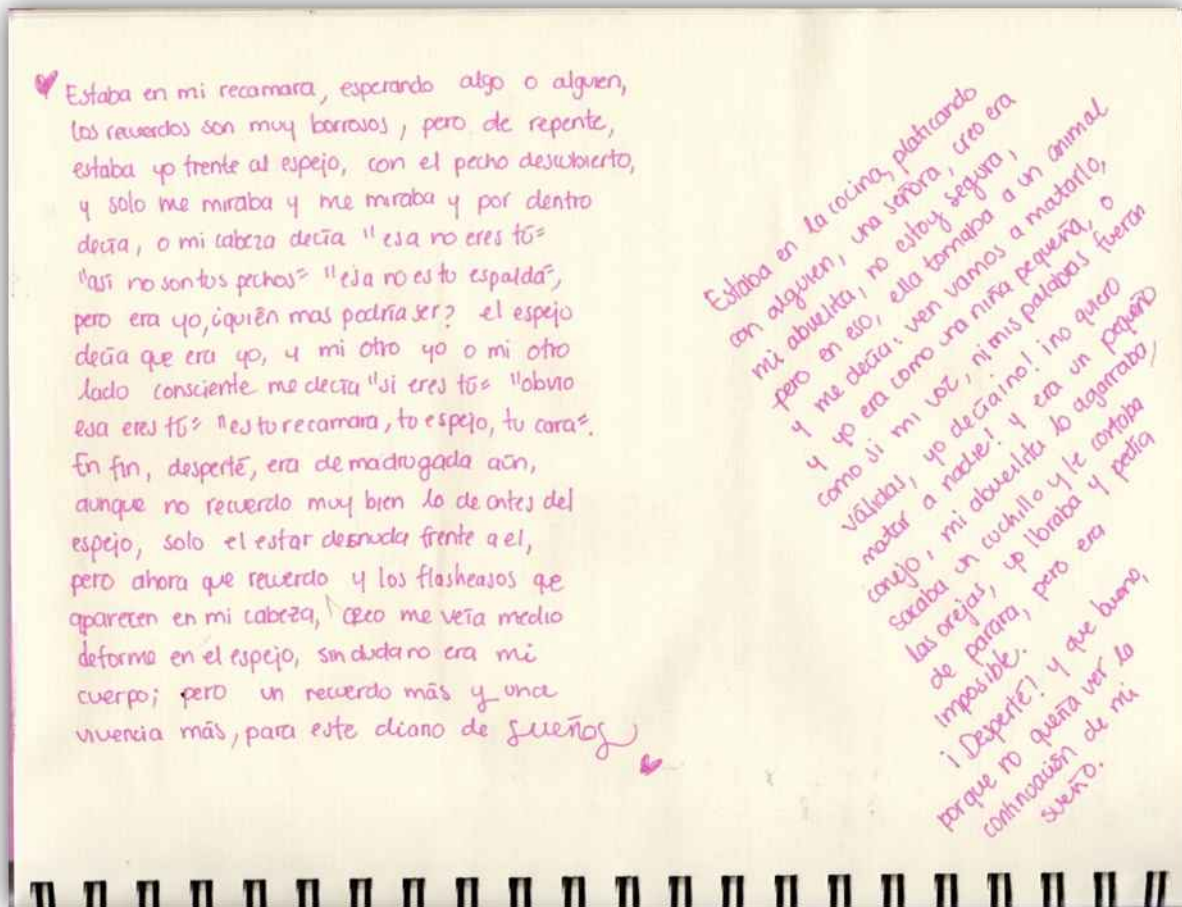 Estaba en mi recamara, esperando algo o alguien,
los recuerdos son muy borrosos, pero de repente,
estaba yo frente al espejo, con el pecho descubierto,
y solo me miraba y me miraba y por dentro
decía, o mi cabeza decía "esa no eres tú"
"así no son tus pechos" "esa no es tu espalda",
pero era yo, ¿quién mas podría ser? el espejo
decía que era yo, y mi otro yo o mi otro
lado consciente me decía "si eres tú" "obvio
esa eres tú" "es tu recamara, tu espejo, tu cara".
En fin, desperté, era de madrugada aún,
aunque no recuerdo muy bien lo de antes del
espejo, solo el estar desnuda frente a el,
pero ahora que recuerdo y los flashasos qe
aparecen en mi cabeza, creo me veía medio
deforme en el espejo, sin duda no era mi
cuerpo; pero un recuerdo más y una
vivencia más, para este diario de sueños
Estaba en la cocina, platicando
con alguien, una señora, creo era
mi abuelita, no estoy segura,
pero en eso, ella tomaba a un animal
y me decía: ven vamos a matarlo,
y yo era como una niña pequeña, o
como si mi voz, ni mis palabras fueran
válidas, yo decía ¡no! ¡no quiero
matar a nadie! y era un pequeño
conejo, mi abuelita lo agarraba,
sacaba un cuchillo y le cortaba
las orejas, yo lloraba y pedía
de parara, pero era
imposible.
¡Desperté! y que bueno,
porque no quería ver la
continuación de mi
sueño.